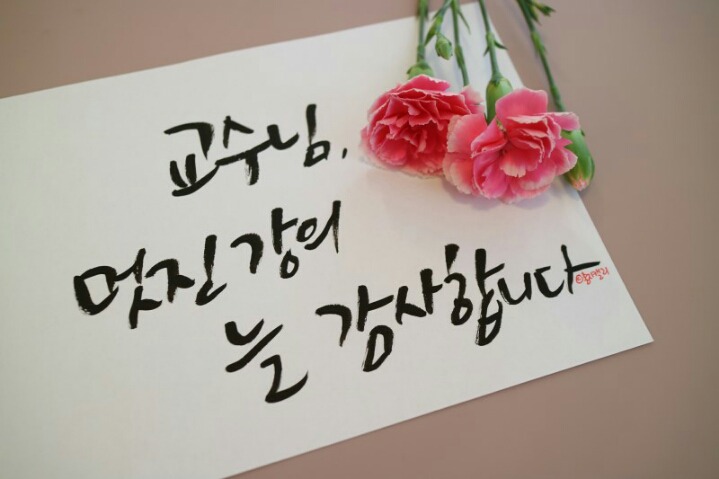 교수님,
멋진 강의
늘 감사합니다